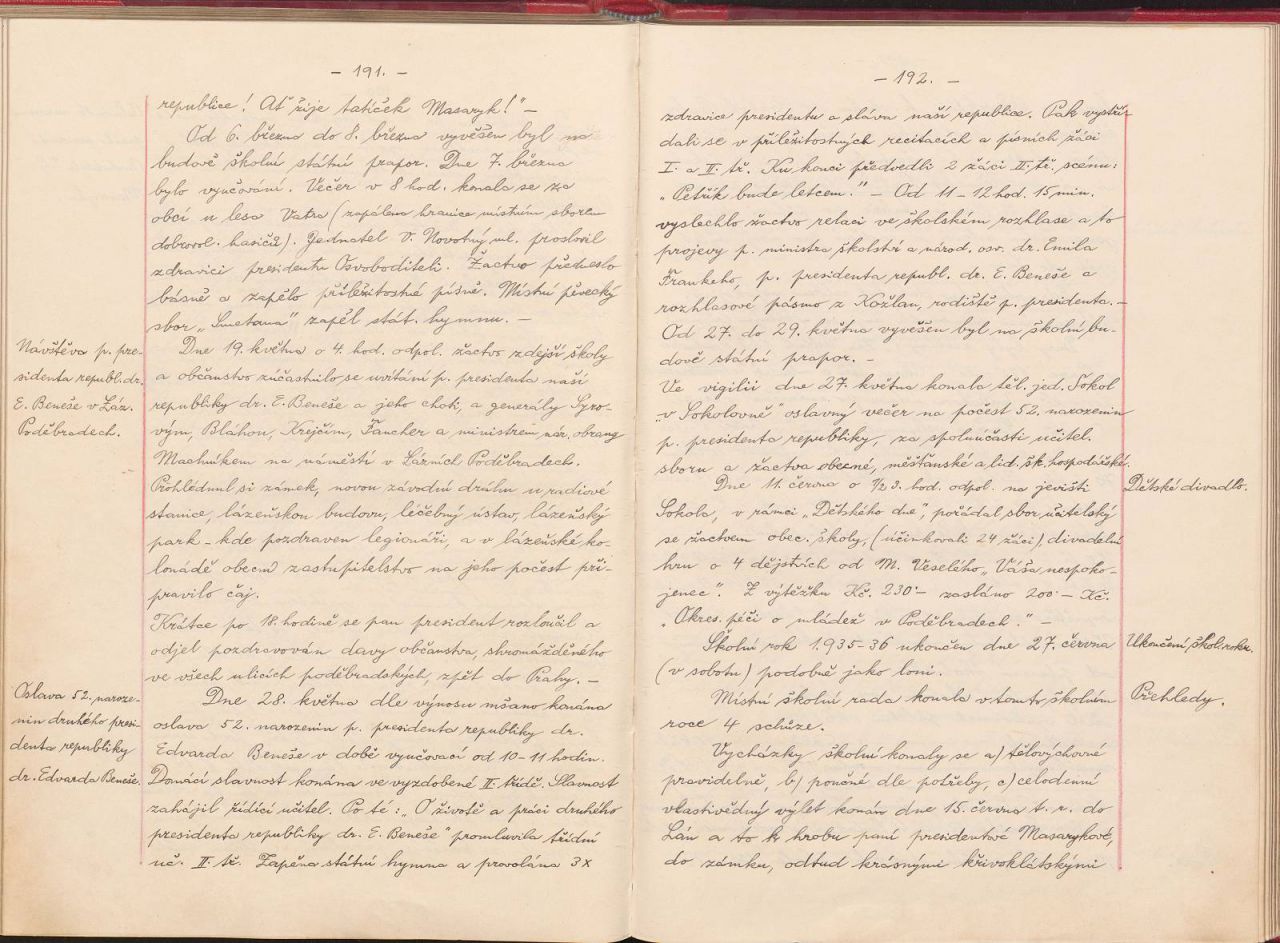 - 191. -
republice! Ať žije tatíček Masaryk!" -
Od 6. března do 8. března vyvěšen byl na
budově školní státní prapor. Dne 7. března
bylo vyučování. Večer v 8 hod. konala se za
obcí u lesa Vatra (zapálena hranice místním sborem
dobrovol. hasičů). Jednatel V. Novotný ml. proslovil
zdravici presidentu Osvoboditeli. Žactvo předneslo
básně a zapělo příležitostné písně. Místní pěvecký
sbor „Smetana" zapěl stát. hymnu. -
Návštěva p. pre-
sidenta republ. dr.
E. Beneše v Láz.
Poděbradech.
Dne 19. května o 4. hod. odpol. žactvo zdejší školy
a občanstvo zúčastnilo se uvítání p. presidenta naší
republiky dr. E. Beneše a jeho choti, a generály Syro-
vým, Bláhou, Krejčím, Faucher a ministrem nár. obrany
Machníkem na náměstí v Lázních Poděbradech.
Prohlédnul si zámek, novou závodní dráhu u radiové
stanice, lázeňskou budovu, léčebný ústav, lázeňský
park - kde pozdraven legionáři, a v lázeňské ko-
lonádě obecní zastupitelstvo na jeho počest při-
pravilo čaj.
Krátce po 18. hodině se pan president rozloučil a
odjel pozdravován davy občanstva, shromážděného
ve všech ulicích poděbradských, zpět do Prahy. -
Oslava 52. naroze-
nin druhého presi-
denta republiky
dr. Edvarda Beneše.
Dne 28. května dle výnosu mšano konána
oslava 52. narozenin p. presidenta republiky dr.
Edvarda Beneše v době vyučovací od 10-11 hodin.
Domácí slavnost konána ve vyzdobené II. třídě. Slavnost
zahájil řídící učitel. Po té: „O životě a práci druhého
presidenta republiky dr. E. Beneše" promluvila třídní
uč. II. tř. Zapěna státní hymna a provolána 3x
- 192. -
zdravice presidentu a sláva naší republice. Pak vystří-
dali se v příležitostných recitacích a písních žáci
I. a II. tř. Ku konci předvedli 2 žáci II. tř. scénu:
„Petřík bude letcem." - Od 11-12 hod. 15 min.
vyslechlo žactvo relaci ve školském rozhlase a to
projevy p. ministra školství a národ. osv. dr. Emila
Frankeho, p. presidenta republ. dr. E. Beneše a
rozhlasové pásmo z Kožlan, rodiště p. presidenta. -
Od 27. do 29. května vyvěšen byl na školní bu-
dově státní prapor. -
Ve vigilii dne 27. května konala těl. jed. Sokol
„v Sokolovně" oslavný večer na počest 52. narozenin
p. presidenta republiky, za spoluúčasti učitel.
sboru a žactva obecné, měšťanské a lid. šk. hospodářské.
Dětské divadlo.
Dne 11. června o 1/2 3. hod. odpol. na jevišti
Sokola, v rámci „Dětského dne", pořádal sbor učitelský
se žactvem obec. školy, (účinkovali 24 žáci), divadelní
hru o 4 dějstvích od M. Veselého „Váša nespoko-
jenec". Z výtěžku Kč. 230·- zasláno 200·- Kč.
„Okres. péči o mládež v Poděbradech." -
Ukončení škol. roku.
Školní rok 1935-36 ukončen dne 27. června
(v sobotu) podobně jako loni.
Přehledy.
Místní školní rada konala v tomto školním
roce 4 schůze.
Vycházky školní konaly se a) tělovýchovné
pravidelně, b) poučné dle potřeby, c) celodenní
vlastivědný výlet konán dne 15. června t. r. do
Lán a to k hrobu paní presidentové Masarykové,
do zámku, odtud krásnými křivoklátskými